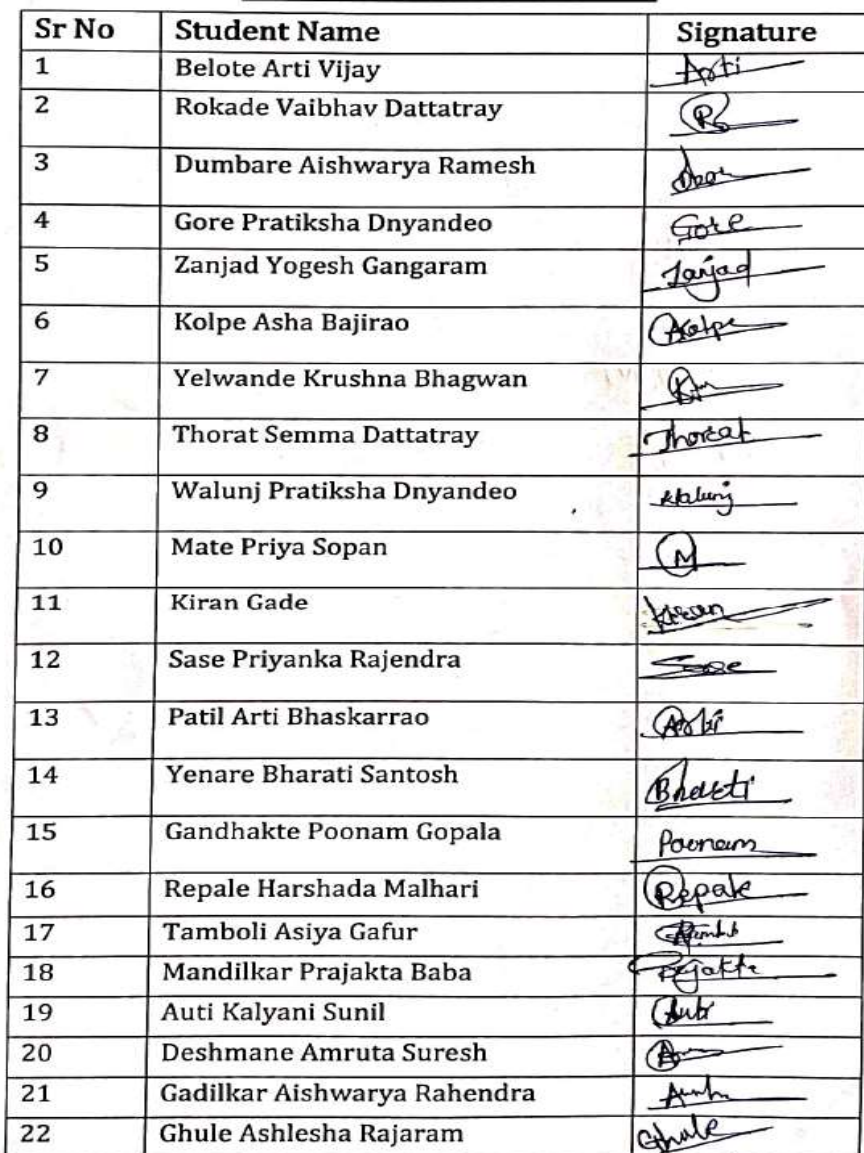 Sr No Student Name Signature
1 Belote Arti Vijay Arti
2 Rokade Vaibhav Dattatray
3 Dumbare Aishwarya Ramesh
4 Gore Pratiksha Dnyandeo Gore
5 Zanjad Yogesh Gangaram Zanjad
6 Kolpe Asha Bajirao
7 Yelwande Krushna Bhagwan
8 Thorat Semma Dattatray Thorat
9 Walunj Pratiksha Dnyandeo Walunj
10 Mate Priya Sopan M
11 Kiran Gade Kiran
12 Sase Priyanka Rajendra Sase
13 Patil Arti Bhaskarrao Arti
14 Yenare Bharati Santosh Bharati
15 Gandhakte Poonam Gopala Poonam
16 Repale Harshada Malhari Repale
17 Tamboli Asiya Gafur
18 Mandilkar Prajakta Baba Prajakta
19 Auti Kalyani Sunil Auti
20 Deshmane Amruta Suresh
21 Gadilkar Aishwarya Rahendra
22 Ghule Ashlesha Rajaram Ghule